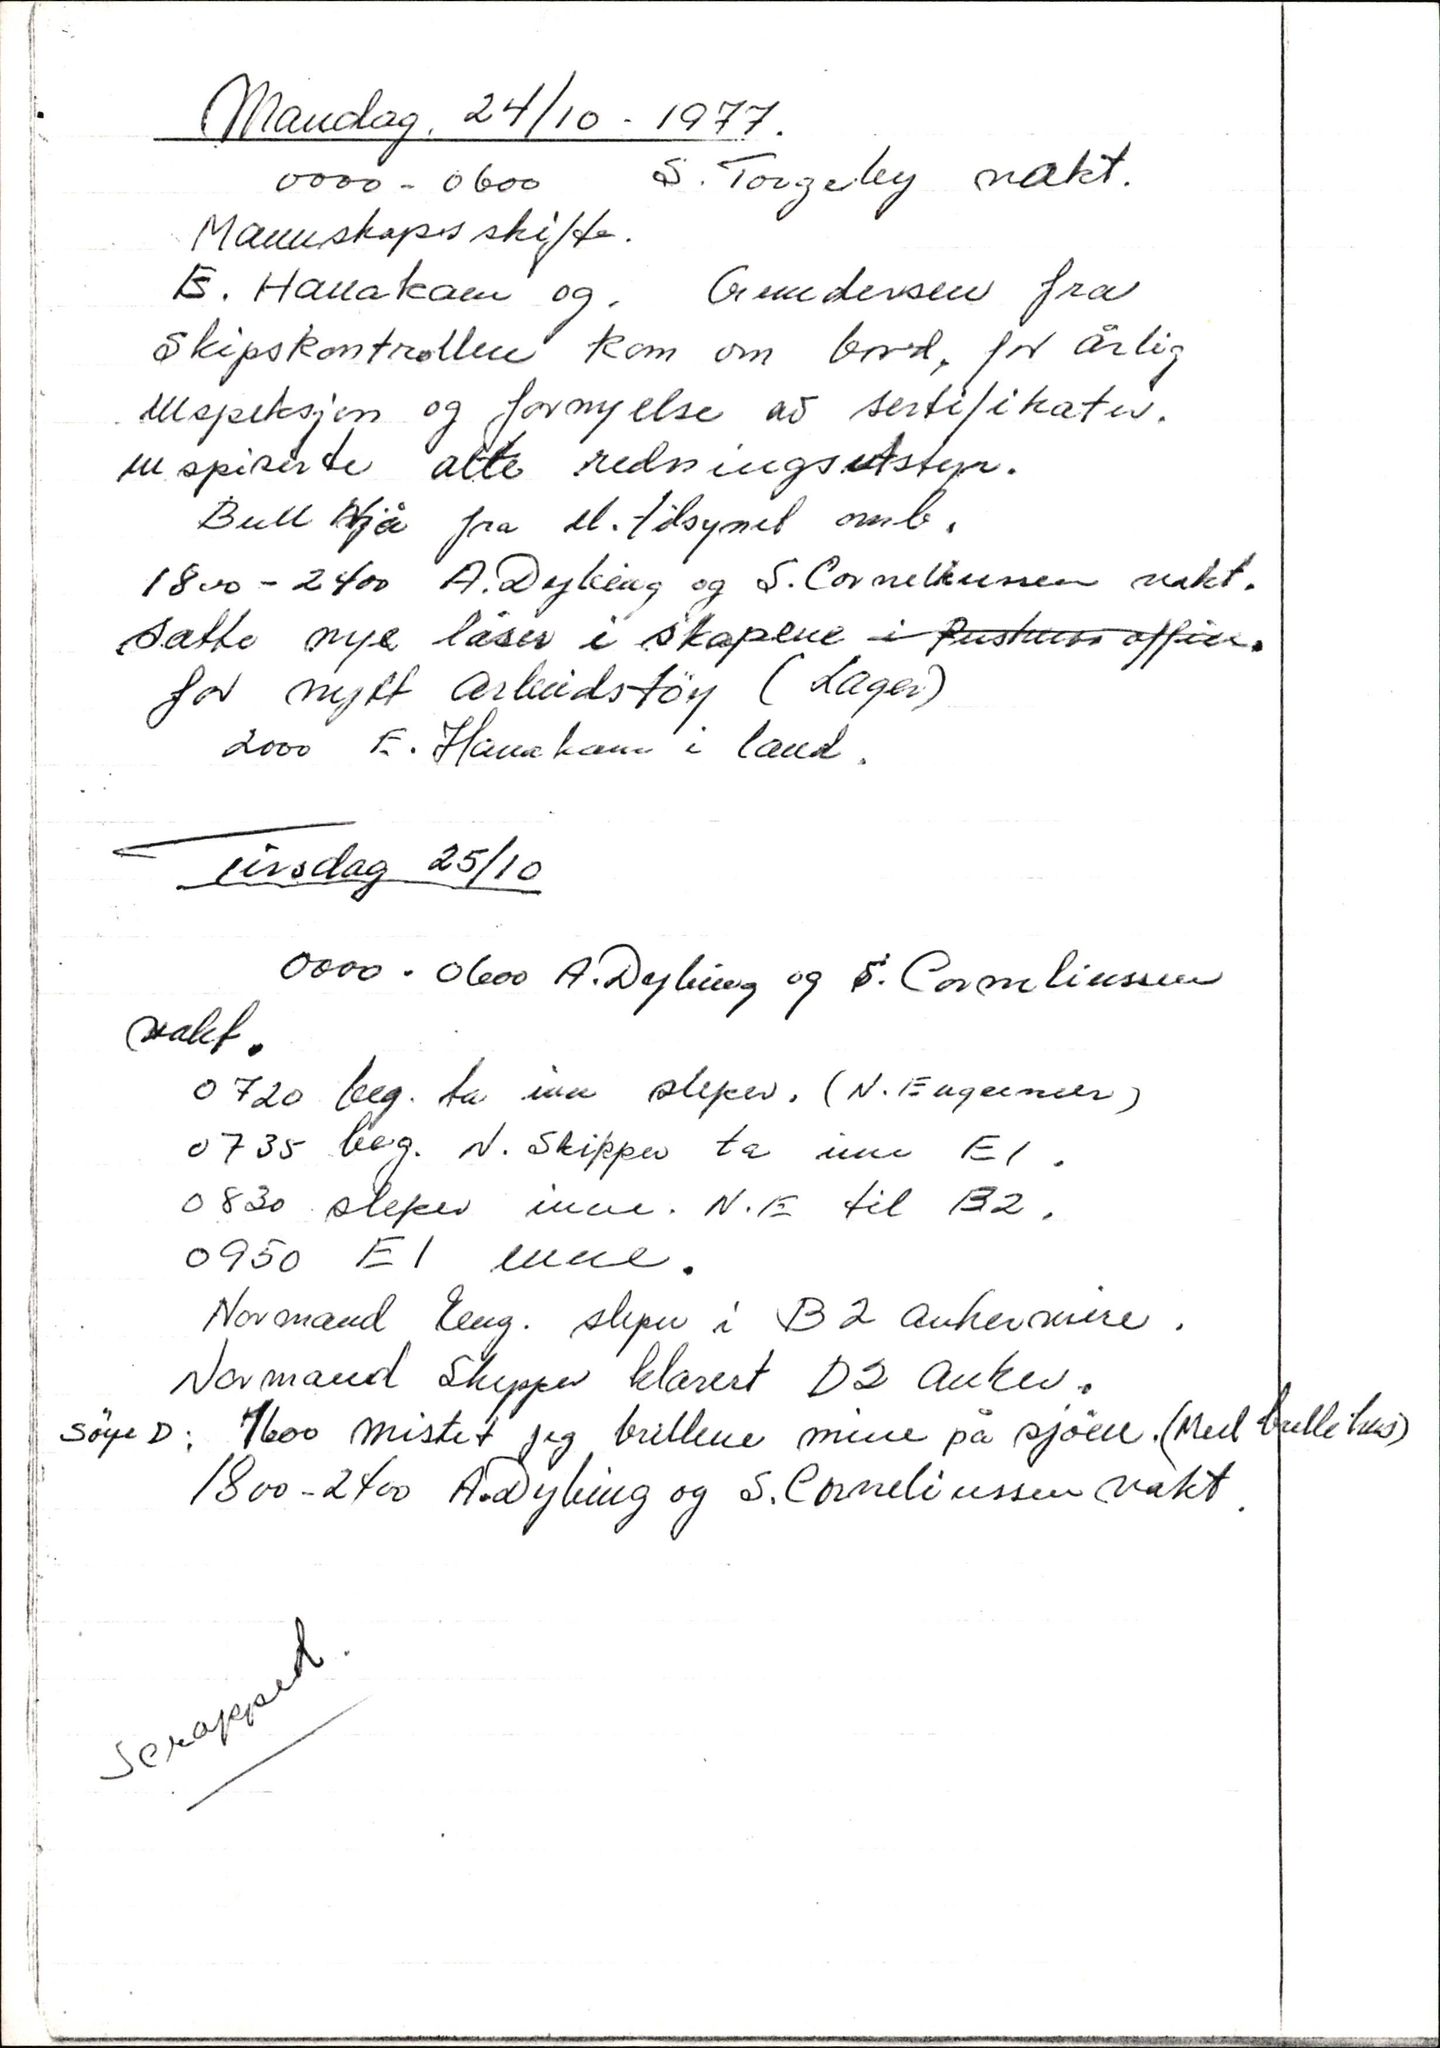 Mandag. 24/10 - 1977.
0000 - 0600 S. Torgerby vakt.
Mannskapsskifte.
E. Hanakam og. Gundersen fra
Skipskontrollen kom om bord, for årlig
inspeksjon og fornyelse av sertifikater.
inspiserte alle redningsutstyr.
Bull Njå fra el. tilsynet omb.
1800 - 2400 A. Dybing og S. Corneliussen vakt.
Satte nye låser i skapene i Pushers office.
for nytt arbeidstöy (Lager)
2000 E. Hanakam i land.
Tirsdag 25/10
0000 - 0600 A. Dybing og S. Corneliussen
vakt.
0720 beg. ta inn sleper. (N. Engeneer)
0735 beg. N. Skipper ta inn E1.
0830 sleper inne. N.E til B2.
0950 E1 inne.
Normand Eng. sleper i B2 ankerwire.
Normand Skipper klarert D2 anker.
1600 mistet jeg brillene mine på sjöen. (Med brillehus)
1800 - 2400 A. Dybing og S. Corneliussen vakt.
Scrapped.